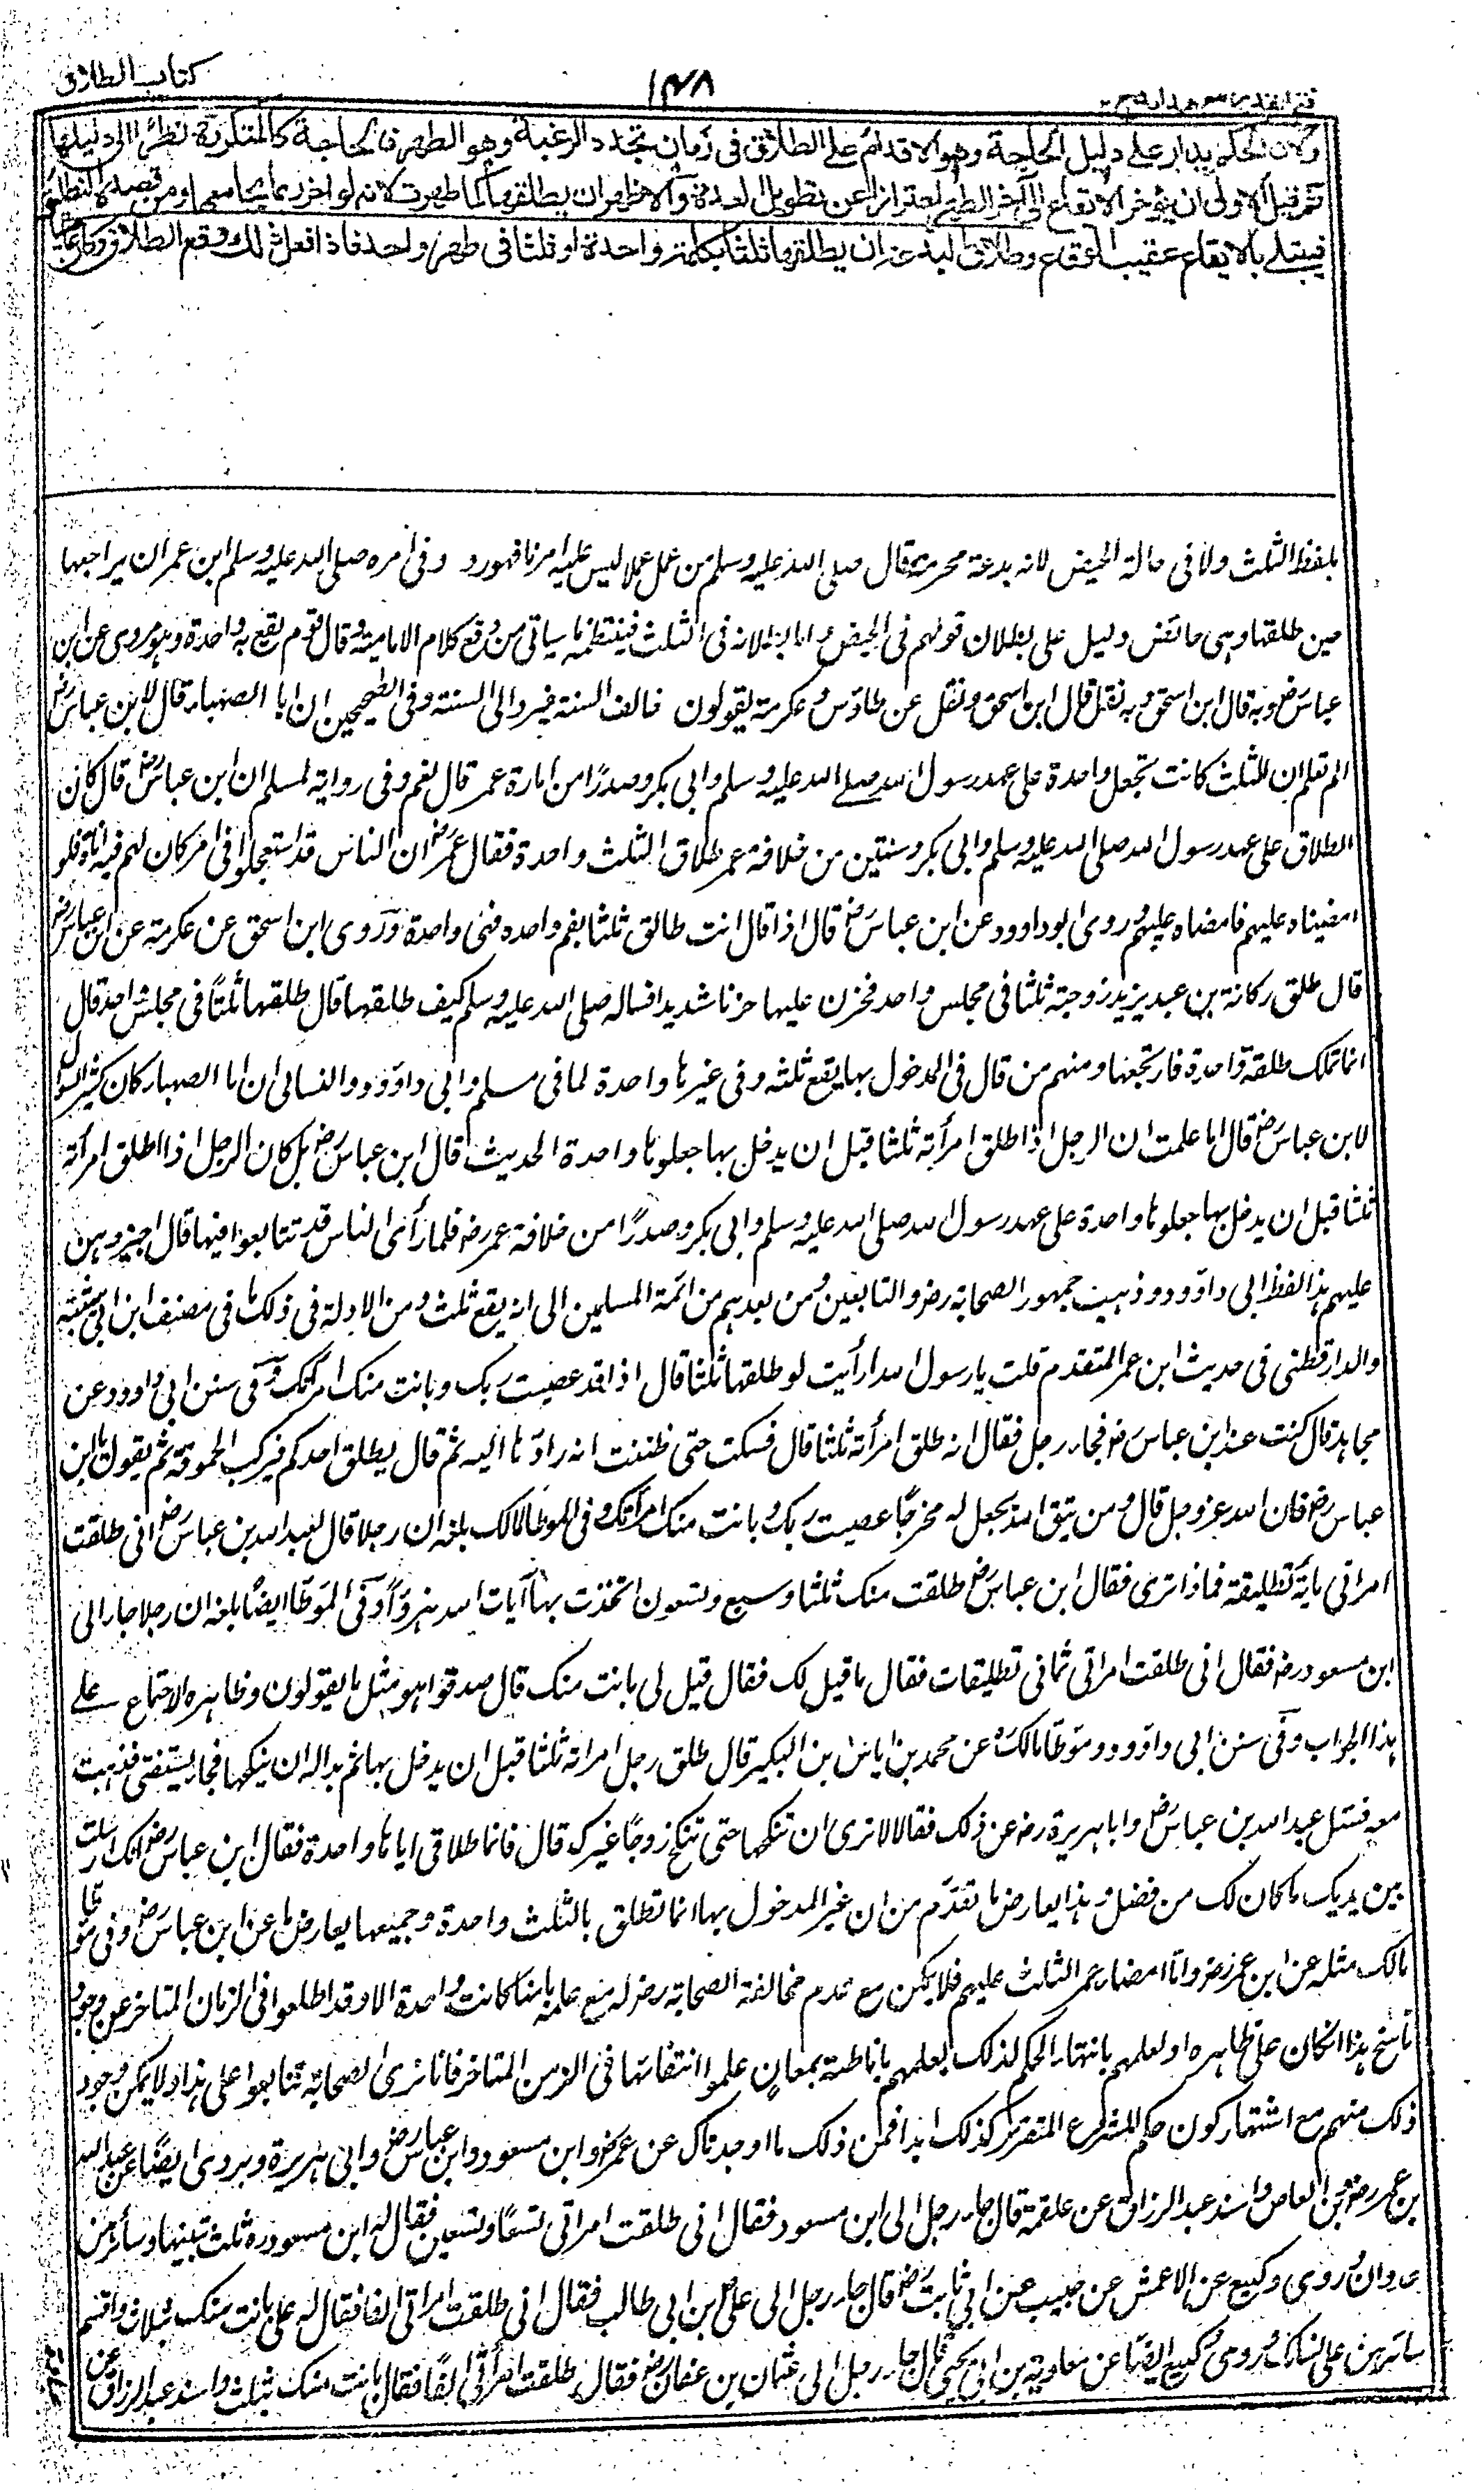 كتاب الطلاق
١٣٨
فتح القدير مع هدايه ج
ولان الحكم يدار على دليل الحاجة وهو الاقدام على الطلاق فى زمان تجدد الرغبة وهو الطهر فالحاجة كالمتكررة نظرا الى دليلها
ثم قيل الاولى ان يؤخر الايقاع الى آخر الطهر احترازا عن تطويل العدة والاظهر ان يطلقها كما طهرت لانه لو اخر ربما يجامعها ومن قصده التطليق
فيبتلى بالايقاع عقيب الوقاع وطلاق البدعة ان يطلقها ثلثا بكلمة واحدة او ثلثا فى طهر واحد فاذا فعل ذلك وقع الطلاق وكان عاصيا
بلفظ الثلث ولا فى حالة الحيض لانه بدعة محرمة قال صلى الله عليه وسلم من عمل عملا ليس عليه امرنا فهو رد وفى امره صلى الله عليه وسلم ابن عمر ان يراجعها
حين طلقها وهى حائض دليل على بطلان قولهم فى الحيض واما بطلانه فى الثلث فينتظمه ما سياتى من دفع كلام الامامية وقال قوم يقع به واحدة وهو مروى عن ابن
عباس رض وبه قال ابن اسحق وبه نقل قال ابن اسحق ونقل عن طاؤس وعكرمة يقولون خالف السنة فيرد الى السنة وفى الصحيحين ان ابا الصهباء قال لابن عباس رض
الم تعلم ان الثلث كانت تجعل واحدة على عهد رسول الله صلى الله عليه وسلم وابى بكر وصدرًا من امارة عمر قال نعم وفى رواية لمسلم ان ابن عباس رض قال كان
الطلاق على عهد رسول الله صلى الله عليه وسلم وابى بكر وسنتين من خلافة عمر طلاق الثلث واحدة فقال عمر رض ان الناس قد استعجلوا فى امر كان لهم فيه اناة فلو
امضيناه عليهم فامضاه عليهم وروى ابو داوود عن ابن عباس رض قال اذا قال انت طالق ثلثا بفم واحده فهى واحدة وروى ابن اسحق عن عكرمة عن ابن عباس رض
قال طلق ركانة بن عبد يزيد زوجته ثلثا فى مجلس واحد فحزن عليها حزنا شديدا فساله صلى الله عليه وسلم كيف طلقتها قال طلقتها ثلثًا فى مجلس واحد قال
انما تملك طلقة واحدة فارتجعها ومنهم من قال فى المدخول بها يقع ثلثه وفى غيرها واحدة لما فى مسلم وابى داوود والنسائى ان ابا الصهباء كان كثير السوال
لابن عباس رض قال اما علمت ان الرجل اذا طلق امرأته ثلثا قبل ان يدخل بها جعلوها واحدة الحديث قال ابن عباس رض بل كان الرجل اذا طلق امرأته
ثلثا قبل ان يدخل بها جعلوها واحدة على عهد رسول الله صلى الله عليه وسلم وابى بكر وصدرًا من خلافة عمر رض فلما رأى الناس قد تتابعوا فيها قال اجيزوهن
عليهم هذا لفظ ابى داوود وذهب جمهور الصحابة رض والتابعين ومن بعدهم من ائمة المسلمين الى انه يقع ثلث ومن الادلة فى ذلك ما فى مصنف ابن ابى شيبة
والدارقطنى فى حديث ابن عمر المتقدم قلت يا رسول الله ارأيت لو طلقتها ثلثا قال اذا قد عصيت ربك وبانت منك امرأتك وفى سنن ابى داوود عن
مجاهد قال كنت عند ابن عباس رض فجاء رجل فقال انه طلق امرأته ثلثا قال فسكت حتى ظننت انه رادها اليه ثم قال يطلق احدكم فيركب الحموقة ثم يقول يا ابن
عباس رض فان الله عز وجل قال ومن يتق الله يجعل له مخرجًا عصيت ربك وبانت منك امرأتك وفى الموطا لمالك بلغه ان رجلا قال لعبد الله بن عباس رض انى طلقت
امراتى مأية تطليقة فماذا ترى فقال ابن عباس رض طلقت منك ثلثا وسبع وتسعون اتخذت بها آيات الله هزوًا وفى الموطّا ايضًا بلغه ان رجلا جاء الى
ابن مسعود رض فقال انى طلقت امراتى ثمانى تطليقات فقال ما قيل لك فقال قيل لى بانت منك قال صدقوا هو مثل ما يقولون وظاهره الاجماع على
هذا الجواب وفى سنن ابى داوود وموطا مالك ره عن محمد بن اياس بن البكير قال طلق رجل امراته ثلثا قبل ان يدخل بها ثم بدا له ان ينكحها فجاء يستفتى فذهبت
معه فسئل عبد الله بن عباس رض وابا هريرة رض عن ذلك فقالا لا نرى ان تنكحها حتى تنكح زوجًا غيرك قال فانما طلاقى اياها واحدة فقال ابن عباس رض انك ارسلت
بين يديك ما كان لك من فضل وهذا يعارض ما تقدم من ان غير المدخول بها انما تطلق بالثلث واحدة وجميعها يعارض ما عن ابن عباس رض وفى موطا
مالك مثله عن ابن عمر رض واما امضاء عمر الثلث عليهم فلا يمكن مع عدم مخالفة الصحابة رض له مع علمه بانها كانت واحدة الا وقد اطلعوا فى الزمان المتاخر عن وجود
ناسخ هذا ان كان على ظاهره او لعلمهم بانتهاء الحكم لذلك لعلمهم باناطته بمعان علموا انتفائها فى الزمن المتاخر فانا نرى الصحابة تتابعوا على هذا ولا يمكن وجود
ذلك منهم مع اشتهار كون حكم الشرع المتقرر كذلك ابدا فمن ذلك ما اوجدناك عن عمر رض وابن مسعود وابن عباس رض وابى هريرة وروى ايضًا عن عبد الله
بن عمر رض وبن العاص واسند عبد الرزاق عن علقمة قال جاء رجل الى ابن مسعود فقال انى طلقت امراتى تسعًا وتسعين فقال له ابن مسعود ره ثلث تبينها وسائرهن
عدوان وروى وكيع عن الاعمش عن حبيب عن ابى ثابت رض قال جاء رجل الى على بن ابى طالب فقال انى طلقت امراتى الفا فقال له على بانت منك بثلاث واقسم
سائرهن على نسائك وروى وكيع ايضًا عن معاوية بن ابى يحيى قال جاء رجل الى عثمان بن عفان رض فقال طلقت امرأتى الفًا فقال بانت منك بثلث واسند عبد الرزاق عن